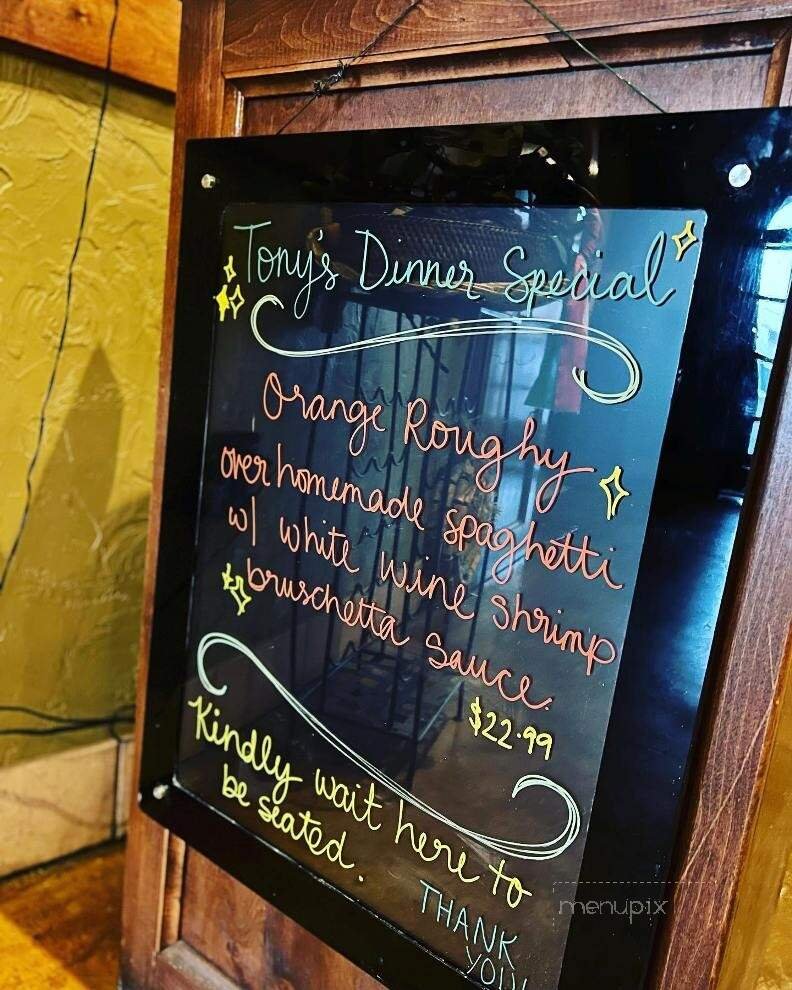 Tony's Dinner Special
Orange Roughy
over homemade spaghetti
w/ white wine shrimp
bruschetta sauce.
$22.99
Kindly wait here to
be seated.
THANK
YOU!
menupix